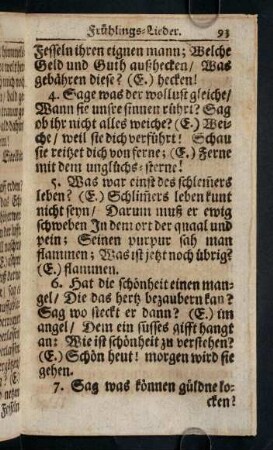 Frühlings-Lieder. 93
Fesseln ihren eignen mann; Welche
Geld und Guth außhecken/ Was
gebähren diese? (E.) hecken!
4. Sage was der wollust gleiche/
Wann sie unsre sinnen rührt? Sag
ob ihr nicht alles weiche? (E.) Wei-
che/ weil sie dich verführt! Schau
sie reitzet dich von ferne; (E.) Ferne
mit dem unglücks-sterne!
5. Was war einst des schlem̃ers
leben? (E.) Schlim̃ers leben kunt
nicht seyn/ Darum muß er ewig
schweben In dem ort der quaal und
pein; Seinen purpur sah man
flammen; Was ist jetzt noch übrig?
(E.) flammen.
6. Hat die schönheit einen man-
gel/ Die das hertz bezaubern kan?
Sag wo steckt er dann? (E.) im
angel/ Dem ein süsses gifft hangt
an: Wie ist schönheit zu verstehen?
(E.) Schön heut! morgen wird sie
gehen.
7. Sag was können güldne lo-
cken?